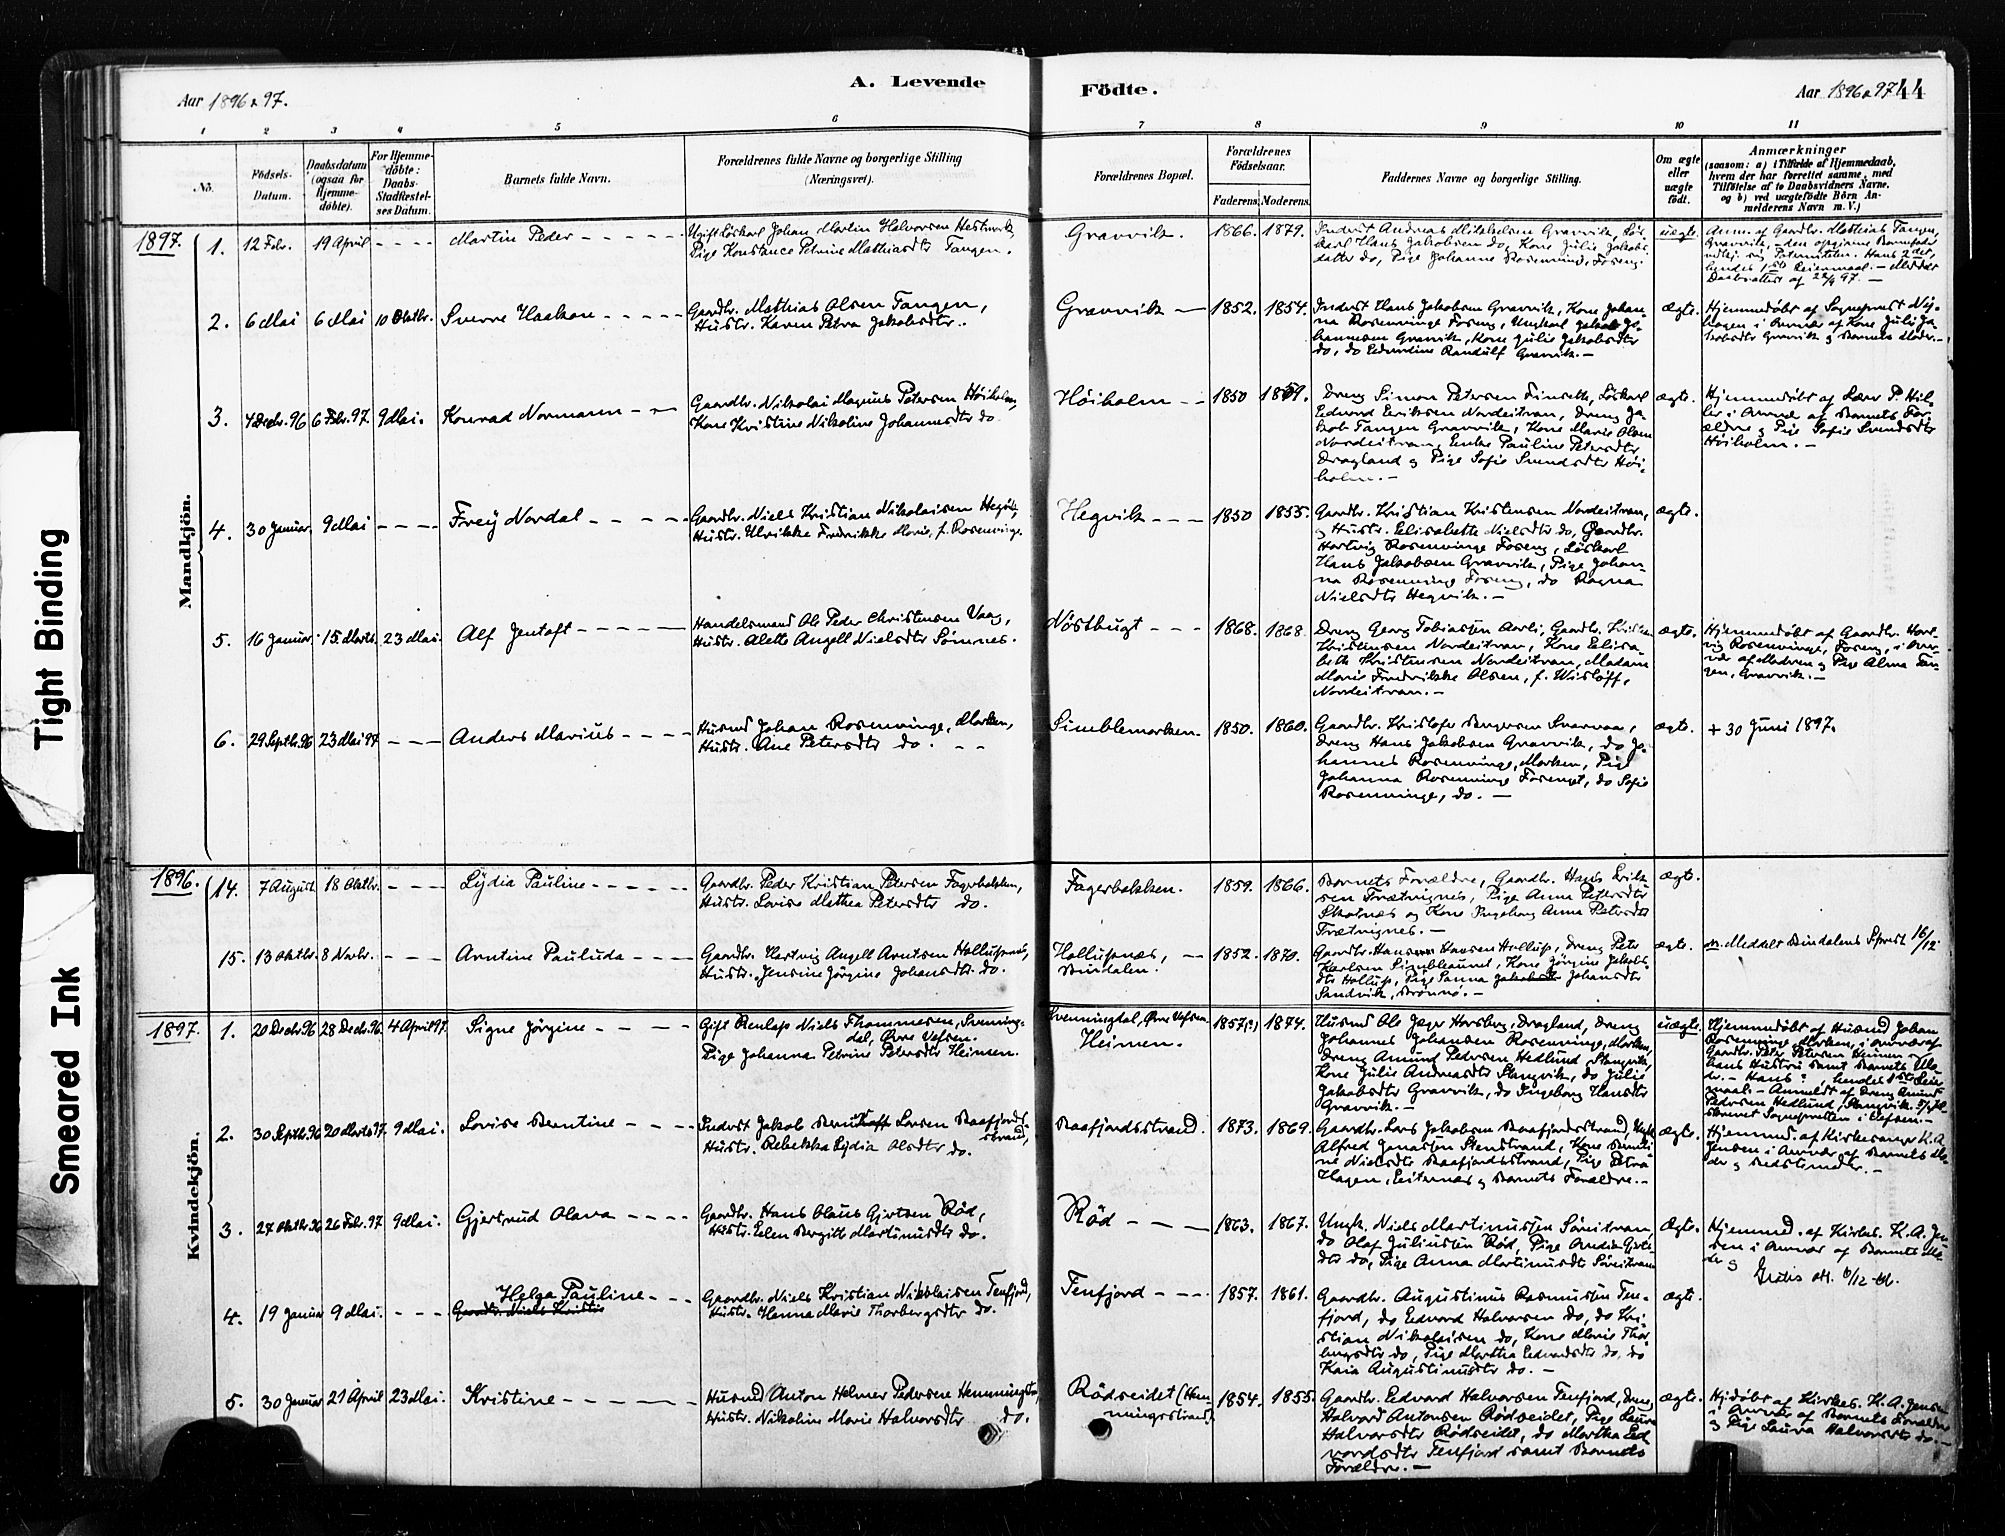 Aar 1896 & 97.
A. Levende
Födte.
Aar 1896 & 97
44
1 2 3 4 5 6 7 8 9 10 11
No.
Födsels-Datum.
Daabsdatum (ogsaa for Hjemme-döbte).
For Hjemme-döbte: Daabs-Stadfæstel-ses Datum.
Barnets fulde Navn.
Forældrenes fulde Navne og borgerlige Stilling (Næringsvei).
Forældrenes Bopæl.
Forældrenes Födselsaar.
Faderens. Moderens.
Faddernes Navne og borgerlige Stilling.
Om ægte eller uægte födt.
Anmærkninger
(saasom: a) i Tilfælde af Hjemmedaab, hvem der har forrettet samme, med Tilföielse af to Daabsvidners Navne, og b) ved uægtefödte Börn An-melderens Navn m. V.)
Mandkjön.
1897.
1. 12 Febr. 19 April - - - - Martin Peder - - - - -
Ugift Löskarl Johan Martin Halvorsen
Pige Konstance Petrine Mathiasdtr Tangen.
Gravvik. 1866. 1879.
Inderst Andreas Mikkelsen Gravvik, Lös-
karl Hans Jakobsen do, Kone Julie Jakobs-
datter do, Pige Johanne Rosenvinge, Foreng.
uægte.
Anm. af Gaardbr. Mathias Tangen,
Gravvik, - den opgivne Barnefader
2. 6 Mai 6 Mai 10 Oktbr. Sverre Haakon - - - - -
Gaardbr. Mathias Olsen Tangen,
Hustr. Karen Petra Jakobsdtr.
Gravvik - 1852. 1854.
Inderst Hans Jakobsen Gravvik, Kone Johan-
na Rosenvinge Foreng, Ungkarl Jakob Jo-
hannesen Gravvik, Kone Julie Jakobsdtr
do, do Edvardine Randulf Gravvik. -
ægte.
Hjemmedöbt af Sogneprest Ny-
hagen i Overvær af Kone Juli Ja-
kobsdtr Gravvik og Barnets Moder. -
3. 4 Decbr. 96 6 Febr. 97 9 Mai. Konrad Normann - -
Gaardbr. Nikolai Magnus Petersen Höiholm,
Kone Kristine Nikoline Johannesdtr do
Höiholm - 1850 1859.
Dreng Simon Petersen Finseth, Löskarl
Edvard Eriksen Nordeitran, Dreng Ja-
kob Tangen Gravvik, Kone Marie Olsen
Nordeitran, Enke Pauline Petersdtr
Dragland og Pige Sofie Svendsdtr Höi-
holm. -
ægte.
Hjemmedöbt af Lær. P. Hil-
ler i Overvær af Barnets For-
ældre og Pige Sofie Svendsdtr
Höiholm. -
4. 30 Januar. 9 Mai - - - Frey Nordal - - - - -
Gaardbr. Niels Kristian Nikolaisen Hegvik,
Hustr. Ulrikke Fredrikke Marie, f. Rosenvinge.
Hegvik - - - 1850 1855.
Gaardbr. Kristian Kristensen Nordeitran,
og Hustr. Elisabeth Nielsdtr do, Gaardbr.
Hartvig Rosenvinge Foreng, Löskarl
Hans Jakobsen Gravvik, Pige Johan-
na Rosenvinge Foreng, do Ragna
Nielsdtr Hegvik. -
ægte.
5. 16 Januar. 15. Marts 23 Mai. Alf Jentoft - - - - -
Handelsmand Ole Peder Christensen Vaag,
Hustr. Alette Angell Nielsdtr Sömnes.
Nöstbugt - - - 1868. 1868.
Dreng Georg Tobiassen Aarli, Gaardbr. Kristen
Kristensen Nordeitran, Kone Elisa-
beth Kristensen Nordeitran, Madam
Marie Fredrikke Olsen, f. Wislöff,
Nordeitran. -
ægte.
Hjemmedöbt af Gaardbr. Hart-
vig Rosenvinge, Foreng, i Over-
vær af Madamen og Pige Alma Tan-
gen, Gravvik. -
6. 29 Septbr. 96 23 Mai 97 - - - Anders Marius - - - -
Husmd Johan Rosenvinge, Marken,
Hustr. Ane Petersdtr do. - -
Simblemarken. 1850. 1860.
Gaardbr. Kristofer Bergersen Svarvaa,
Dreng Hans Jakobsen Gravvik, do Jo-
hannes Rosenvinge, Marken, Pige
Johanna Rosenvinge Forenget, do Sofie
Rosenvinge, do. -
ægte.
+ 30 Juni 1897.
Kvindekjön.
1896.
14. 7 August. 18 Oktbr. - - - Lydia Pauline - - - - - -
Gaardbr. Peder Kristian Petersen Fagerbakken,
Hustr. Lovise Mathea Petersdtr do.
Fagerbakken. 1859. 1866.
Barnets Forældre, Gaardbr. Hans Erik-
sen Trætvignes, Pige Anna Petersdtr
Skotnæs og Kone Ingeborg Anna Petersdtr
Trætvignes. -
ægte.
15. 13 Oktbr. 8 Novbr. - - - Arntine Pauluda - - - -
Gaardbr. Hartvig Angell Arntsen Hollupnæs,
Hustr. Jensine Jörgine Johansdtr. do.
Hollupnæs, -
Bindalen. 1852. 1870.
Gaardbr. Hans Hansen Hollup, Dreng Peter
Karlsen Simbleaunet, Kone Jörgine Jakobs-
dtr Hollup, Pige Sanna Johansdtr
Sandvik, Brönnö. -
ægte.
Meddelt Bindalens S.prest 16/12
1897.
1. 20 Decbr. 96 28 Decbr. 96. 4 April 97. Signe Jörgine - - - -
Gift Renlap Niels Thommesen, Svenning-
dal, Övre Vefsen.
Pige Johanna Petrine Petersdtr Heimen.
Svenningdal, Övre Vefsen
Heimen. 1857(?) 1874.
Husmd Ole Jæger Horsberg, Dragland, Dreng
Johannes Johansen Rosenvinge, Marken,
Dreng Amund Pedersen Hedlund, Stangvik,
Kone Julie Andreasdtr Stangvik, do Julie
Jakobsdtr Gravvik, do Ingeborg Hansdtr
Gravvik. -
uægte.
Hjemmedöbt af Husmd Johan
Rosenvinge Marken, i Overvær af
Gaardbr. Peter Petersen Heimen og
hans Hustru samt Barnets Mo-
der. - Hans ?, hendes 1ste Leier-
maal. - Anmeldt af Dreng Amund
Pedersen Hedlund, Stangvik.
2. 30 Septbr. 96 20 Marts 97. 9 Mai. Lovise Berntine - - -
Inderst Jakob Larsen Raafjords-
strand,
Hustr. Rebekka Lydia Olsdtr do.
Raafjordsstrand. 1873. 1869.
Gaardbr. Lars Jakobsen Raafjordsstrand, Ungk.
Alfred Jonassen Stenstrand, Kone Bernti-
ne Nielsdtr Raafjordsstrand, Pige Petra
Hagen, Eiternæs og Barnets Forældre. -
ægte.
Hjemmed. af Kirkesanger K. A.
Jensen i Overvær af Barnets Mo-
der og Bedstemoder. -
3. 27 Oktbr. 96 26 Febr. 97 9 Mai. Gjertrud Olava - - - -
Gaardbr. Hans Olaus Gjertsen Röd,
Hustr. Ellen Bergitte Martinusdtr do.
Röd - - - 1863. 1867.
Ungk. Niels Martinussen Söreitran,
do Olaf Juliussen Röd, Pige Andrea Gjerts-
dtr do, Pige Anna Martinusdtr Söreitran
ægte.
Hjemmed. af Kirkes. K. A. Jen-
sen i Overvær af Barnets Mo-
der og
4. 19 Januar 9 Mai. - - - Helga Pauline - - -
Gaardbr. Niels Kristia
Gaardbr. Niels Kristian Nikolaisen Tenfjord,
Hustr. Hanna Marie Thorbergsdtr do.
Tenfjord - - - 1857. 1861.
Gaardbr. Augustinus Rasmussen Ten-
fjord, do Edvard Halvorsen do, do Kri-
stian Nikolaisen do, Kone Marie Thor-
bergsdtr do, Pige Martha Edvardsdtr do, do
Kaia Augustinusdtr do. -
ægte.
5. 30 Januar 21 April 23 Mai. Kristine - - - - - -
Husmd Anton Helmer Pedersen Hemmingstr.,
Hustr. Nikoline Marie Halvorsdtr do.
Rödseidet (Hem-
mingsstrand). 1854. 1855.
Gaardbr. Edvard Halvorsen Tenfjord, Dreng
Halvard Antonsen Rödseidet, Pige Laura
Halvorsdtr Rödseidet, do Martha Ed-
vardsdtr Tenfjord samt Barnets
Forældre. -
ægte.
Hjdöbt af Kirkes. K. A. Jensen
i Overvær af Barnets Forældre
og Pige Laura Halvorsdtr do. -
Tight Binding
Smeared Ink